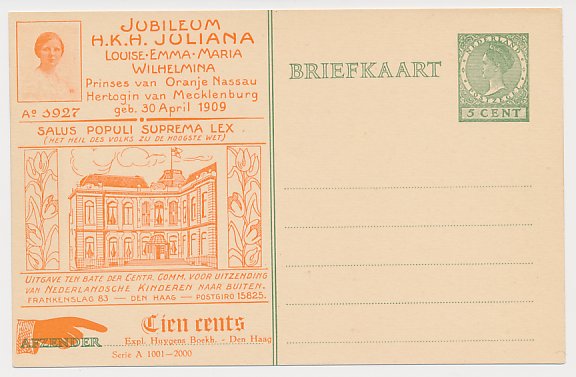 JUBILEUM
H.K.H. JULIANA
LOUISE-EMMA-MARIA
WILHELMINA
Prinses van Oranje Nassau
Hertogin van Mecklenburg
geb. 30 April 1909
Aº 5927
SALUS POPULI SUPREMA LEX
(HET HEIL DES VOLKS ZIJ DE HOOGSTE WET)
UITGAVE TEN BATE DER CENTR. COMM. VOOR UITZENDING
VAN NEDERLANDSCHE KINDEREN NAAR BUITEN.
FRANKENSLAG 83 — DEN HAAG — POSTGIRO 15825.
Tien cents
AFZENDER
Expl. Huygens Boekh. - Den Haag
Serie A 1001-2000
BRIEFKAART
NEDERLAND
5 CENT